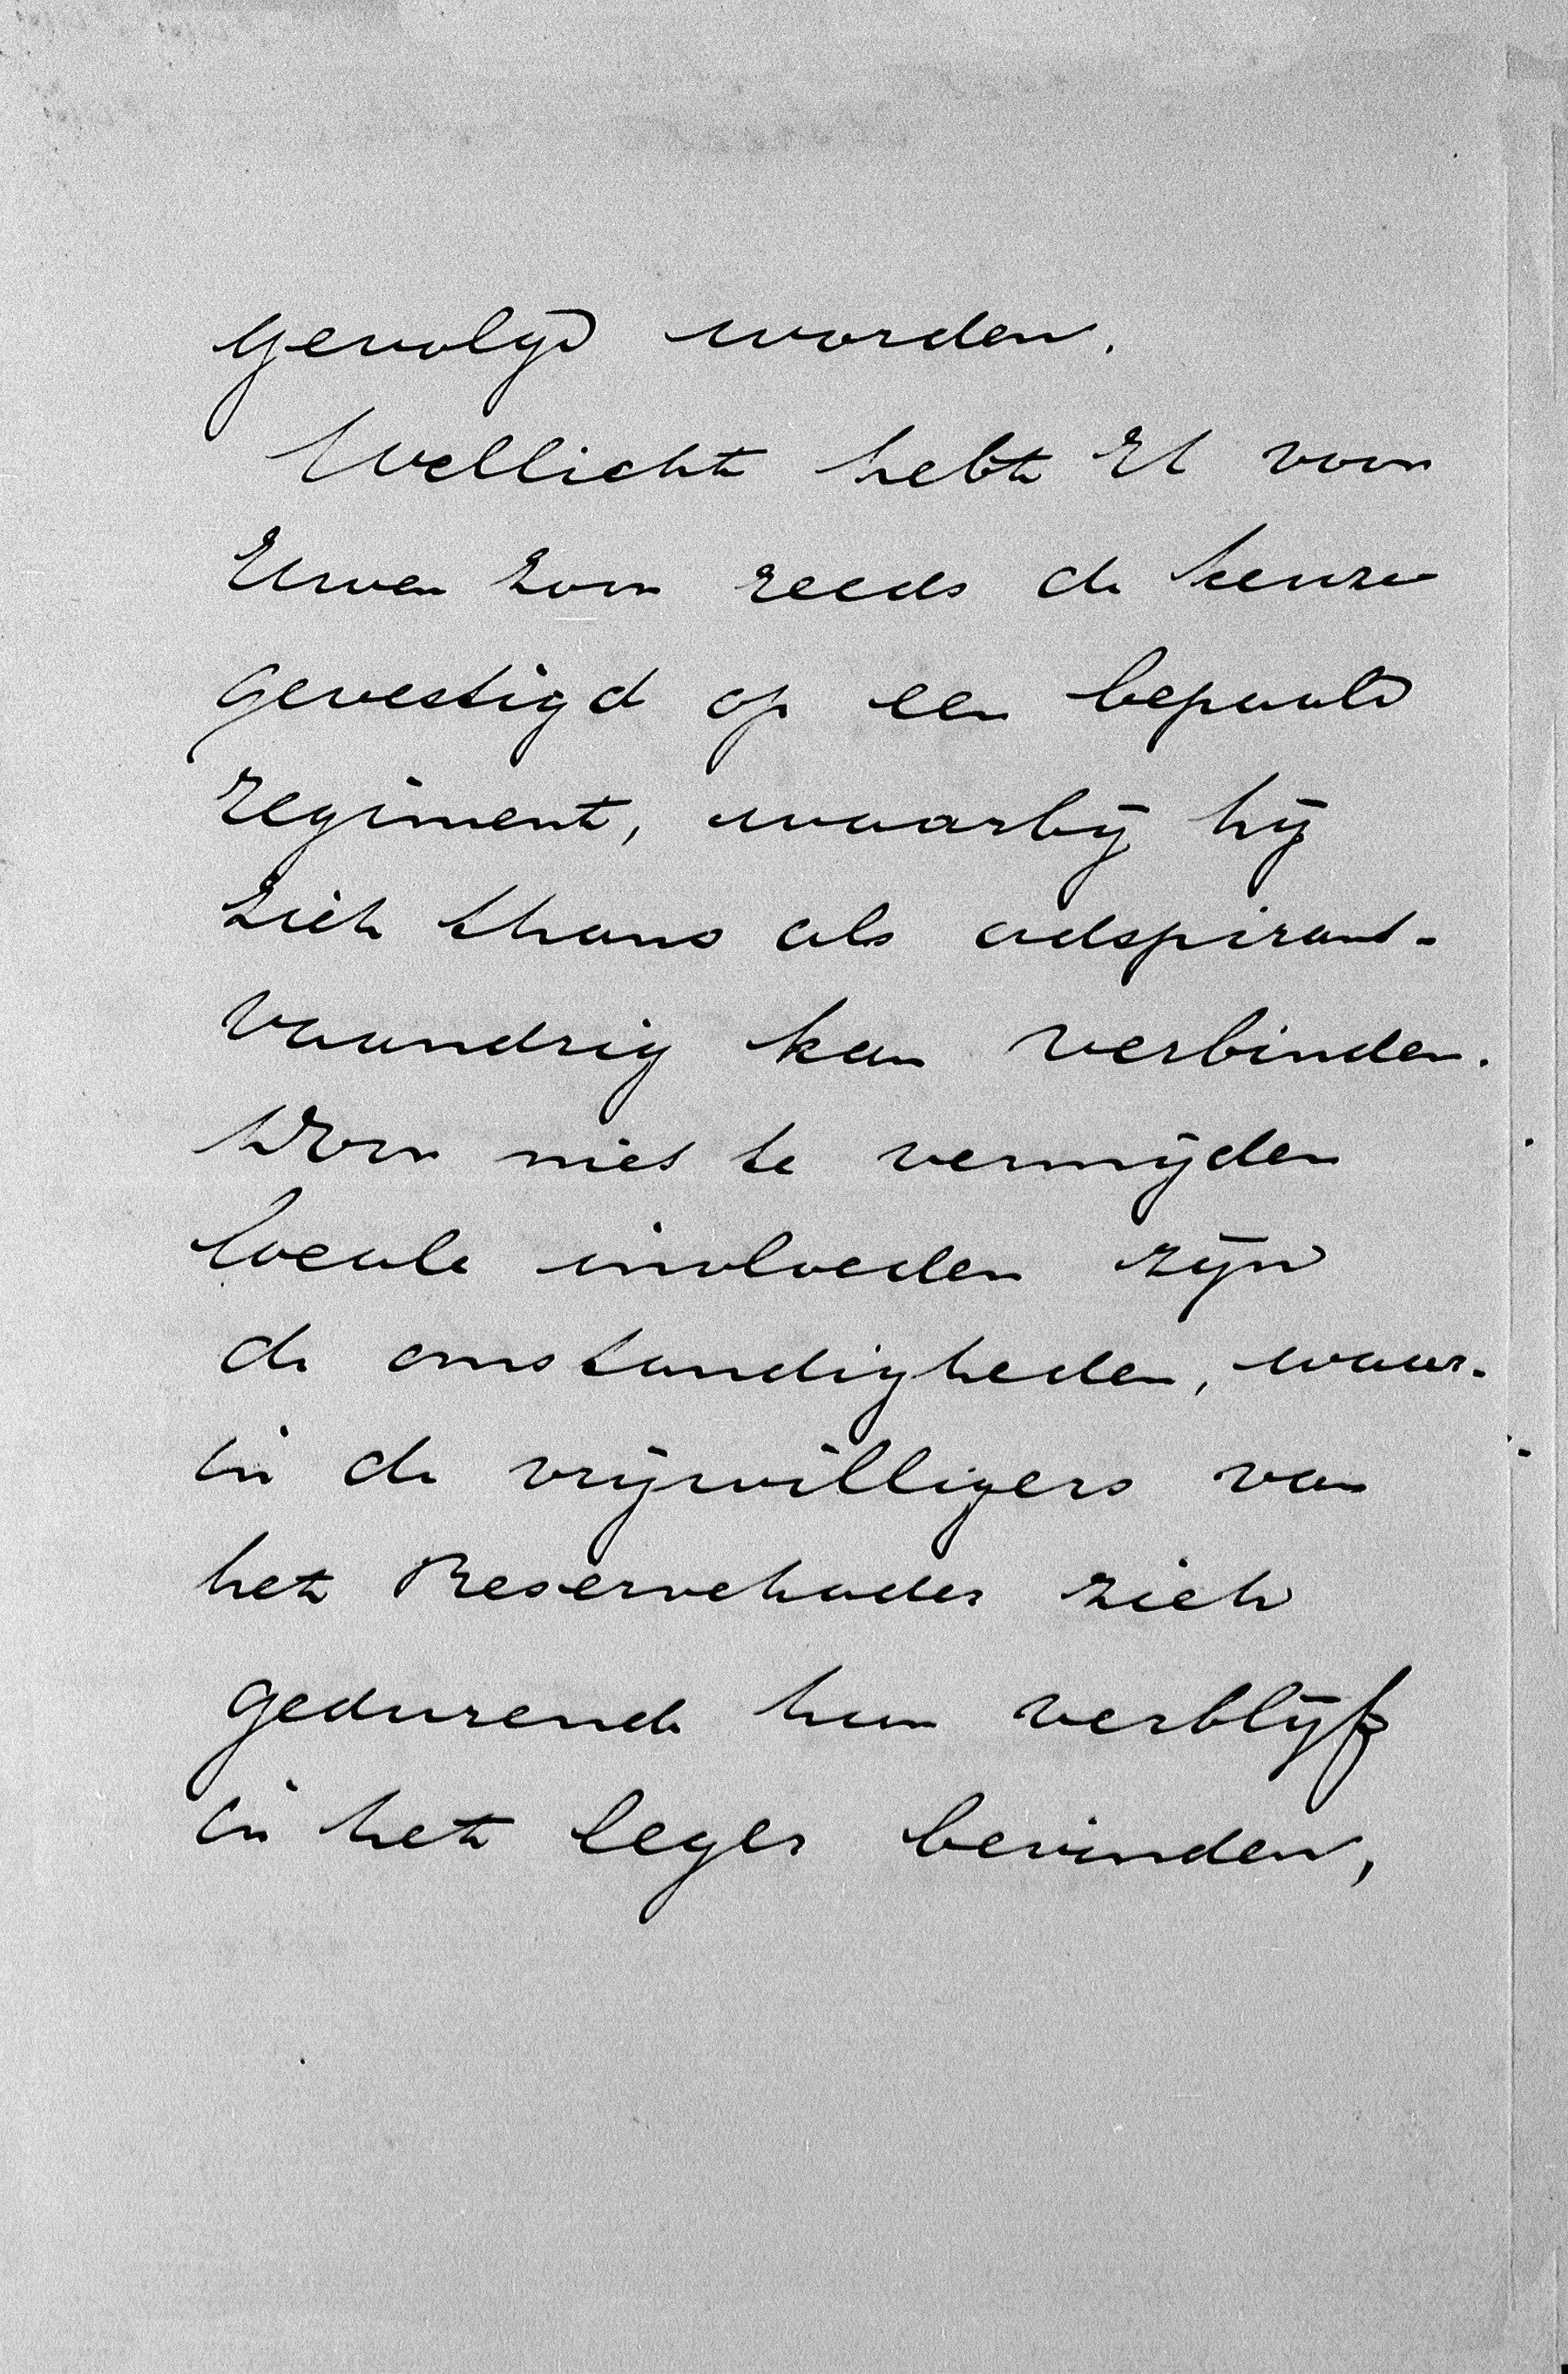 gevolgd worden.
Wellicht hebt U voor
Uwen zoon reeds de keuze
gevestigd op een bepaald
regiment, waarbij hij
zich thans als adspirant-
vaandrig kan verbinden.
Door niet te vermijden
locale invloeden zijn
de omstandigheden, waar-
in de vrijwilligers van
het Reservekader zich
gedurende hun verblijf
in het leger bevinden,